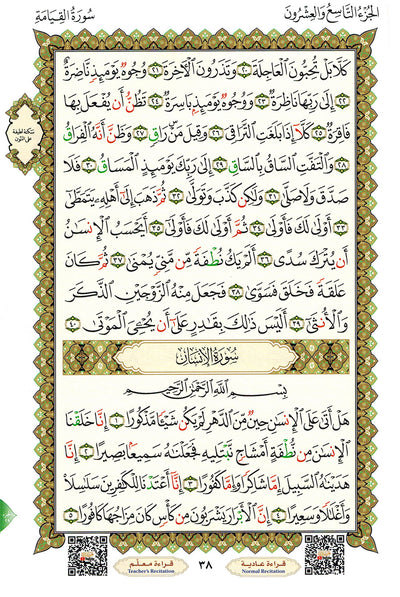 الجزء التاسع والعشرون
سورة القيامة
كَلَّا بَلْ تُحِبُّونَ الْعَاجِلَةَ ٢٠ وَتَذَرُونَ الْآخِرَةَ ٢١ وُجُوهٌ يَوْمَئِذٍ نَّاضِرَةٌ
٢٢ إِلَىٰ رَبِّهَا نَاظِرَةٌ ٢٣ وَوُجُوهٌ يَوْمَئِذٍ بَاسِرَةٌ ٢٤ تَظُنُّ أَن يُفْعَلَ بِهَا
فَاقِرَةٌ ٢٥ كَلَّا إِذَا بَلَغَتِ التَّرَاقِيَ ٢٦ وَقِيلَ مَنْ رَاقٍ ٢٧ وَظَنَّ أَنَّهُ الْفِرَاقُ
٢٨ وَالْتَفَّتِ السَّاقُ بِالسَّاقِ ٢٩ إِلَىٰ رَبِّكَ يَوْمَئِذٍ الْمَسَاقُ ٣٠ فَلَا
صَدَّقَ وَلَا صَلَّىٰ ٣١ وَلَٰكِن كَذَّبَ وَتَوَلَّىٰ ٣٢ ثُمَّ ذَهَبَ إِلَىٰ أَهْلِهِ يَتَمَطَّىٰ
٣٣ أَوْلَىٰ لَكَ فَأَوْلَىٰ ٣٤ ثُمَّ أَوْلَىٰ لَكَ فَأَوْلَىٰ ٣٥ أَيَحْسَبُ الْإِنسَانُ
أَن يُتْرَكَ سُدًى ٣٦ أَلَمْ يَكُ نُطْفَةً مِّن مَّنِيٍّ يُمْنَىٰ ٣٧ ثُمَّ كَانَ
عَلَقَةً فَخَلَقَ فَسَوَّىٰ ٣٨ فَجَعَلَ مِنْهُ الزَّوْجَيْنِ الذَّكَرَ
وَالْأُنثَىٰ ٣٩ أَلَيْسَ ذَٰلِكَ بِقَادِرٍ عَلَىٰ أَن يُحْيِيَ الْمَوْتَىٰ ٤٠
سورة الإنسان
بِسْمِ اللَّهِ الرَّحْمَٰنِ الرَّحِيمِ
هَلْ أَتَىٰ عَلَى الْإِنسَانِ حِينٌ مِّنَ الدَّهْرِ لَمْ يَكُن شَيْئًا مَّذْكُورًا ١ إِنَّا خَلَقْنَا
الْإِنسَانَ مِن نُّطْفَةٍ أَمْشَاجٍ نَّبْتَلِيهِ فَجَعَلْنَاهُ سَمِيعًا بَصِيرًا ٢ إِنَّا
هَدَيْنَاهُ السَّبِيلَ إِمَّا شَاكِرًا وَإِمَّا كَفُورًا ٣ إِنَّا أَعْتَدْنَا لِلْكَافِرِينَ سَلَاسِلَا
وَأَغْلَالًا وَسَعِيرًا ٤ إِنَّ الْأَبْرَارَ يَشْرَبُونَ مِن كَأْسٍ كَانَ مِزَاجُهَا كَافُورًا ٥
قراءة عادية
Normal Recitation
٣٨
قراءة معلّم
Teacher's Recitation